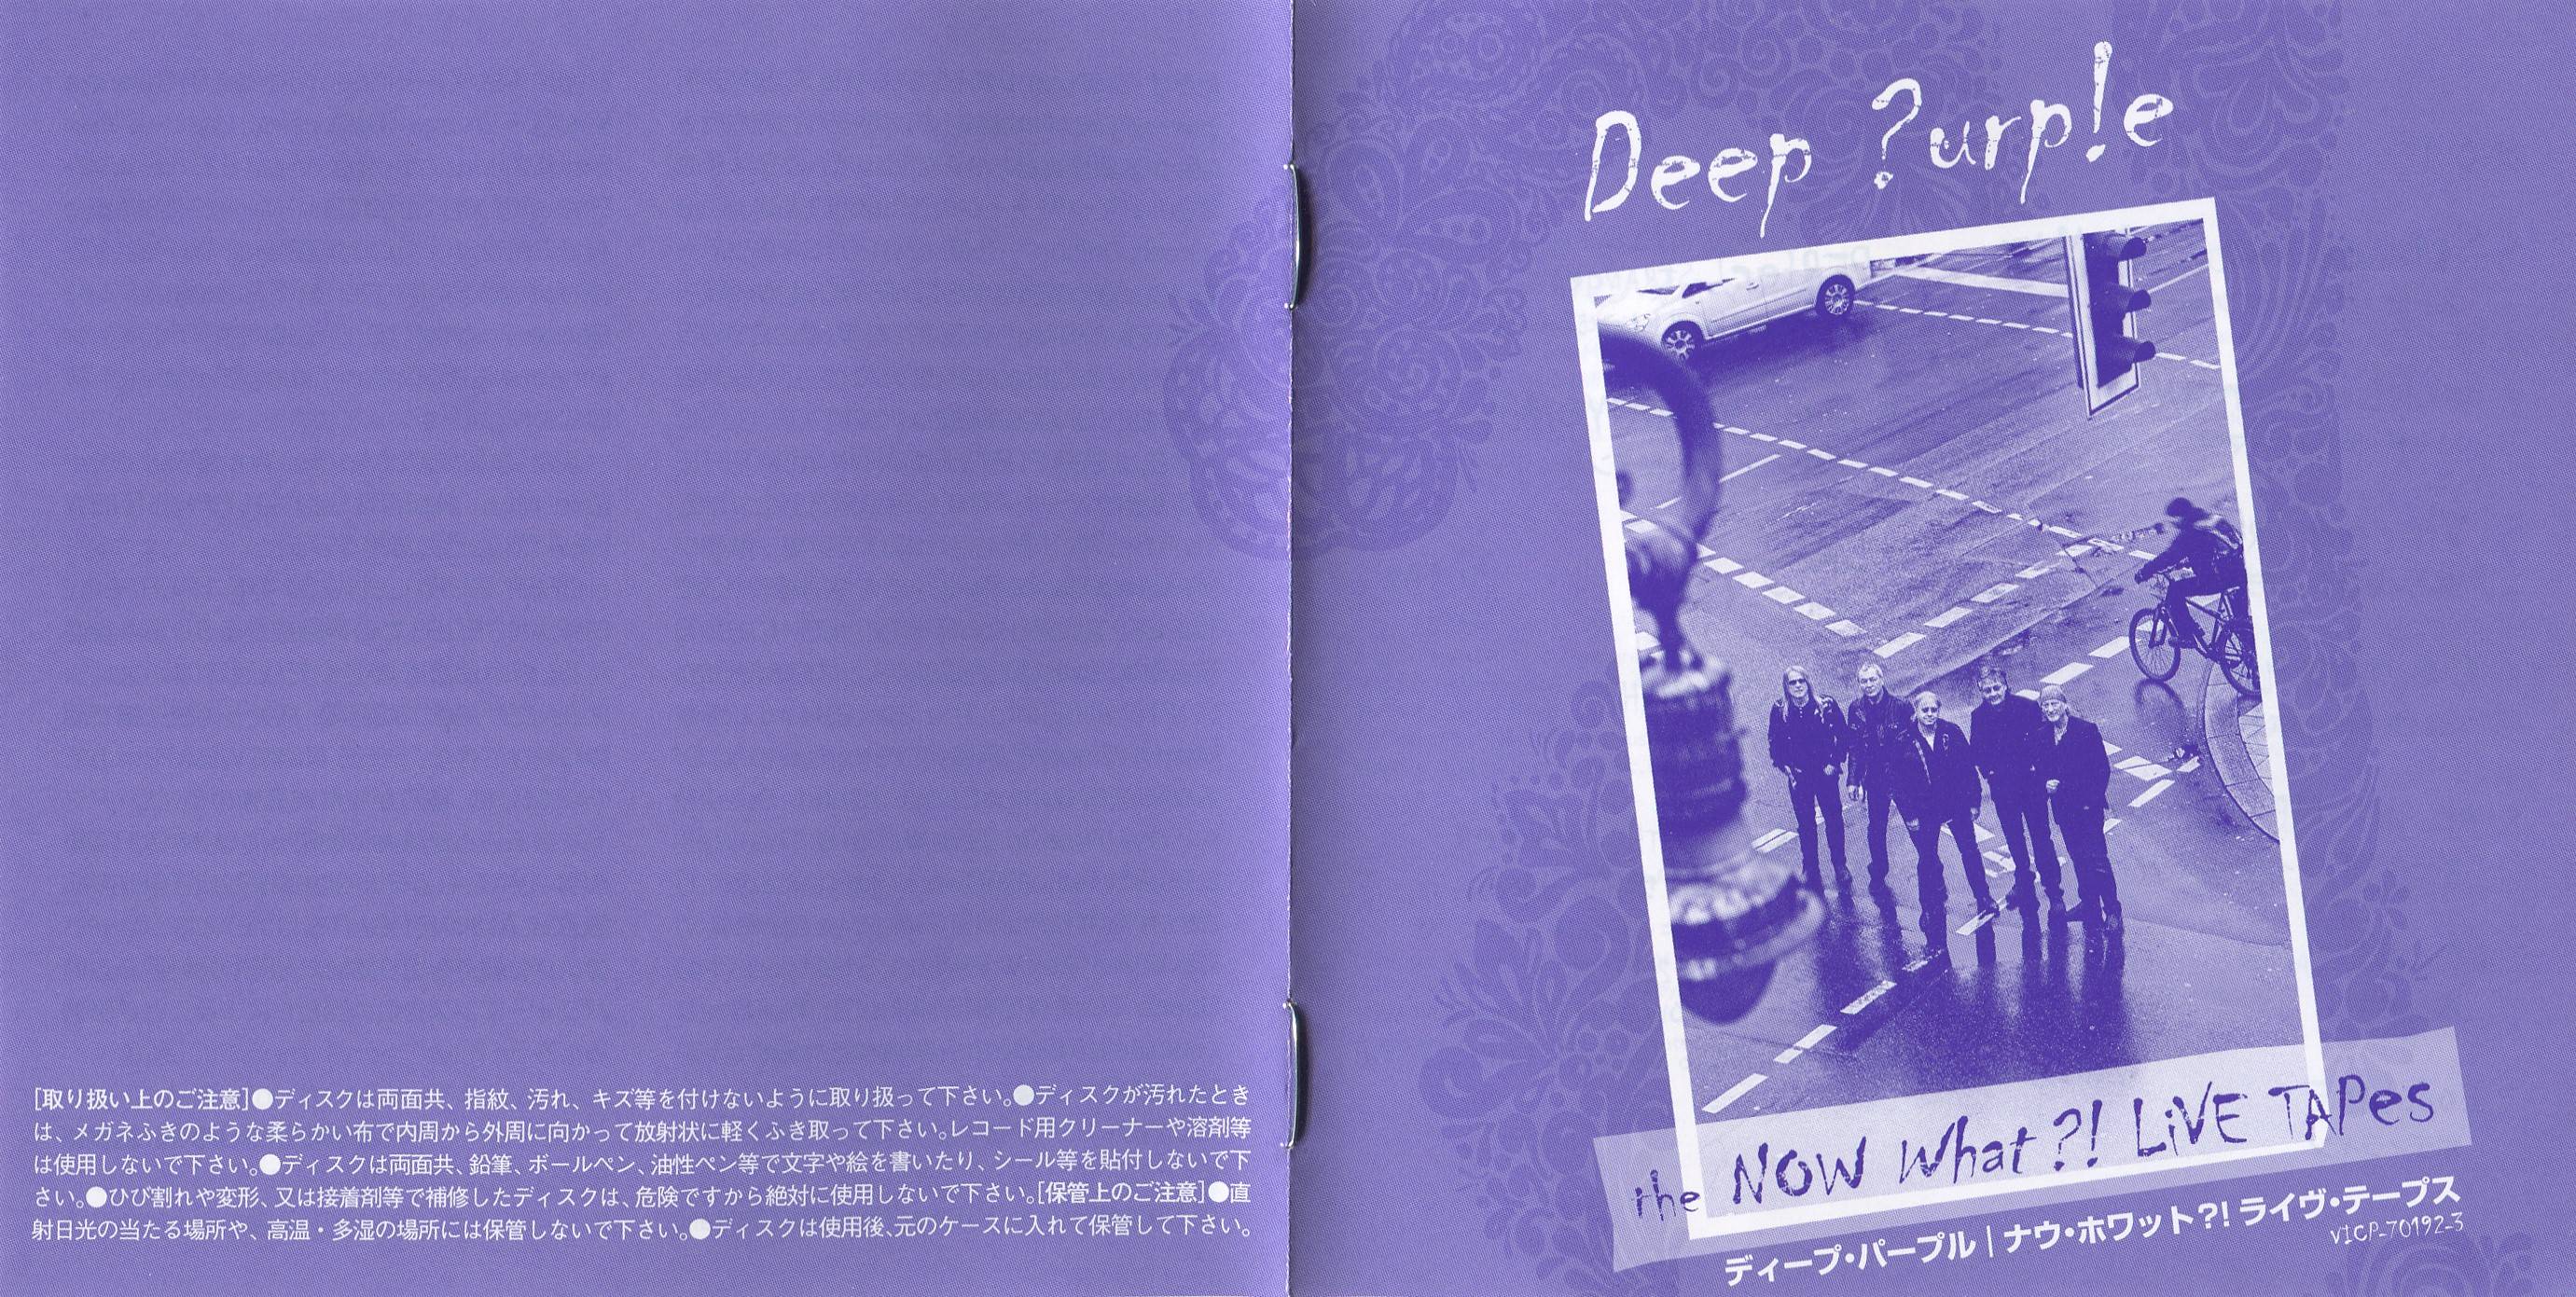 [取り扱い上のご注意]●ディスクは両面共、指紋、汚れ、キズ等を付けないように取り扱って下さい。●ディスクが汚れたとき
は、メガネふきのような柔らかい布で内周から外周に向かって放射状に軽くふき取って下さい。レコード用クリーナーや溶剤等
は使用しないで下さい。●ディスクは両面共、鉛筆、ボールペン、油性ペン等で文字や絵を書いたり、シール等を貼付しないで下
さい。●ひび割れや変形、又は接着剤等で補修したディスクは、危険ですから絶対に使用しないで下さい。[保管上のご注意]●直
射日光の当たる場所や、高温・多湿の場所には保管しないで下さい。●ディスクは使用後、元のケースに入れて保管して下さい。
Deep ?urp!e
the NOW What?! LiVE TAPes
ディープ・パープル|ナウ・ホワット?! ライヴ・テープス
VICP-70192-3